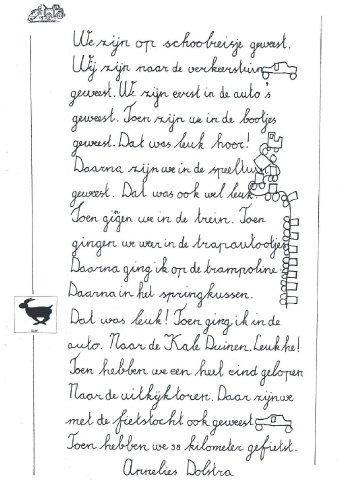 We zijn op schoolreisje geweest.
Wij zijn naar de verkeerstuin
geweest. We zijn eerst in de auto's
geweest. Toen zijn we in de bootjes
geweest. Dat was leuk hoor!
Daarna zijn we in de speeltuin
geweest. Dat was ook wel leuk.
Toen gigen we in de trein. Toen
gingen we weer in de trapautootjes
Daarna ging ik op de trampoline
Daarna in het springkussen.
Dat was leuk! Toen ging ik in de
auto. Naar de Kale Duinen. Leuk he!
Toen hebben we een heel eind gelopen
Naar de uitkijktoren. Daar zijn we
met de fietstocht ook geweest
Toen hebben we 38 kilometer gefietst.
Annelies Dolstra